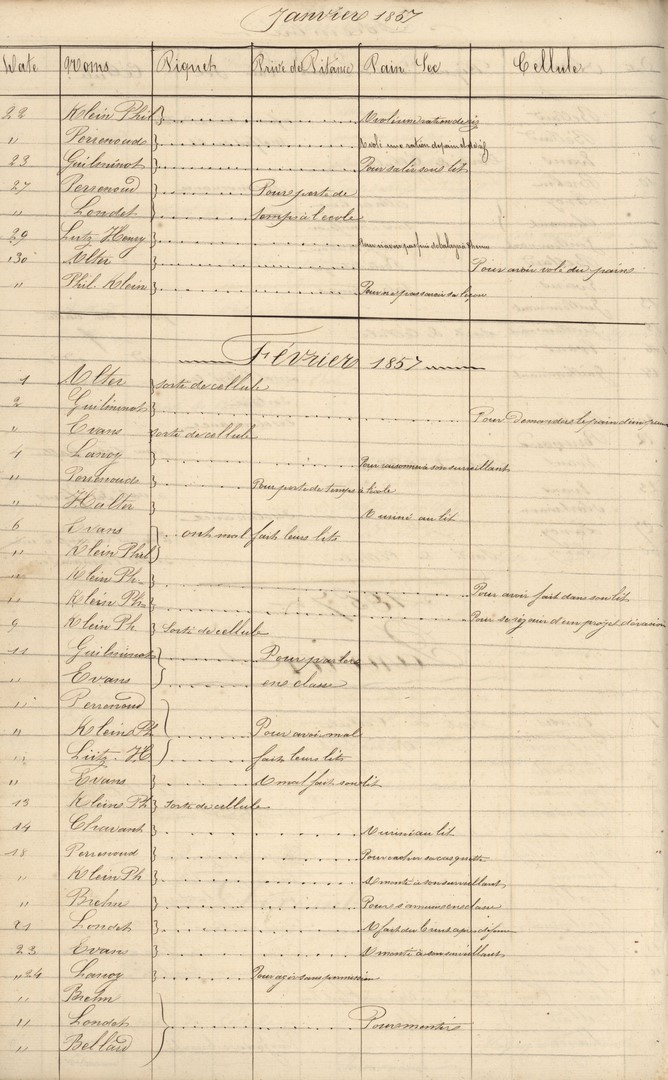 Janvier 1857
Date Noms Piquet Privé de Pitance Pain Sec Cellule
22 Klein Phil A volé une ration de riz
" Perrenoud A volé une ration de pain et de riz
23 Guibminot Pour salir sous lit
27 Perrenoud Pour perte de
" Londet temps à l'école
29 Lutz Henry
30 Alter Pour avoir volé du pain
" Phil. Klein Pour ne pas savoir sa leçon
Février 1857
1 Alter Sorte de cellule
2 Guibminot Pour Demander le pain d'un
" Evans Sorte de cellule
4 Lanoy Pour raisonner à son surveillant
" Perrenoud Pour perte de temps à l'école
" Halter A uriné au lit
6 Evans ont mal fait leurs lits
" Klein Phil
" Klein Ph Pour avoir fait dans son lit
" Klein Ph Pour se réjouir d'un projet d'évasion
9 Klein Ph Sorte de cellule
11 Guibminot Pour parler
" Evans en classe
" Perrenoud
" Klein Ph Pour avoir mal
" Lutz. H. fait leurs lits
" Evans A mal fait son lit
13 Klein Ph Sorte de cellule
14 Chavant A uriné au lit
18 Perrenoud Pour casquette
" Klein Ph A menti à son surveillant
" Brehm Pour s'amuser en classe
21 Londet A fait du
23 Evans A menti à son surveillant
" 24 Lanoy Pour agir sans permission
" Brehm
" Londet Pour mentir
" Bellard